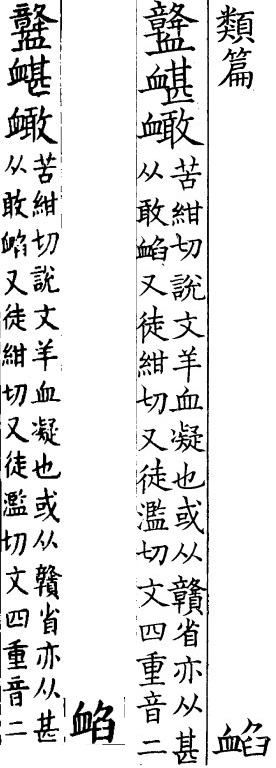 類篇
䘓
苦紺切說文羊血凝也或从贛省亦从甚
从敢䘓又徒紺切又徒濫切文四重音二
䘓
苦紺切說文羊血凝也或从贛省亦从甚
从敢䘓又徒紺切又徒濫切文四重音二